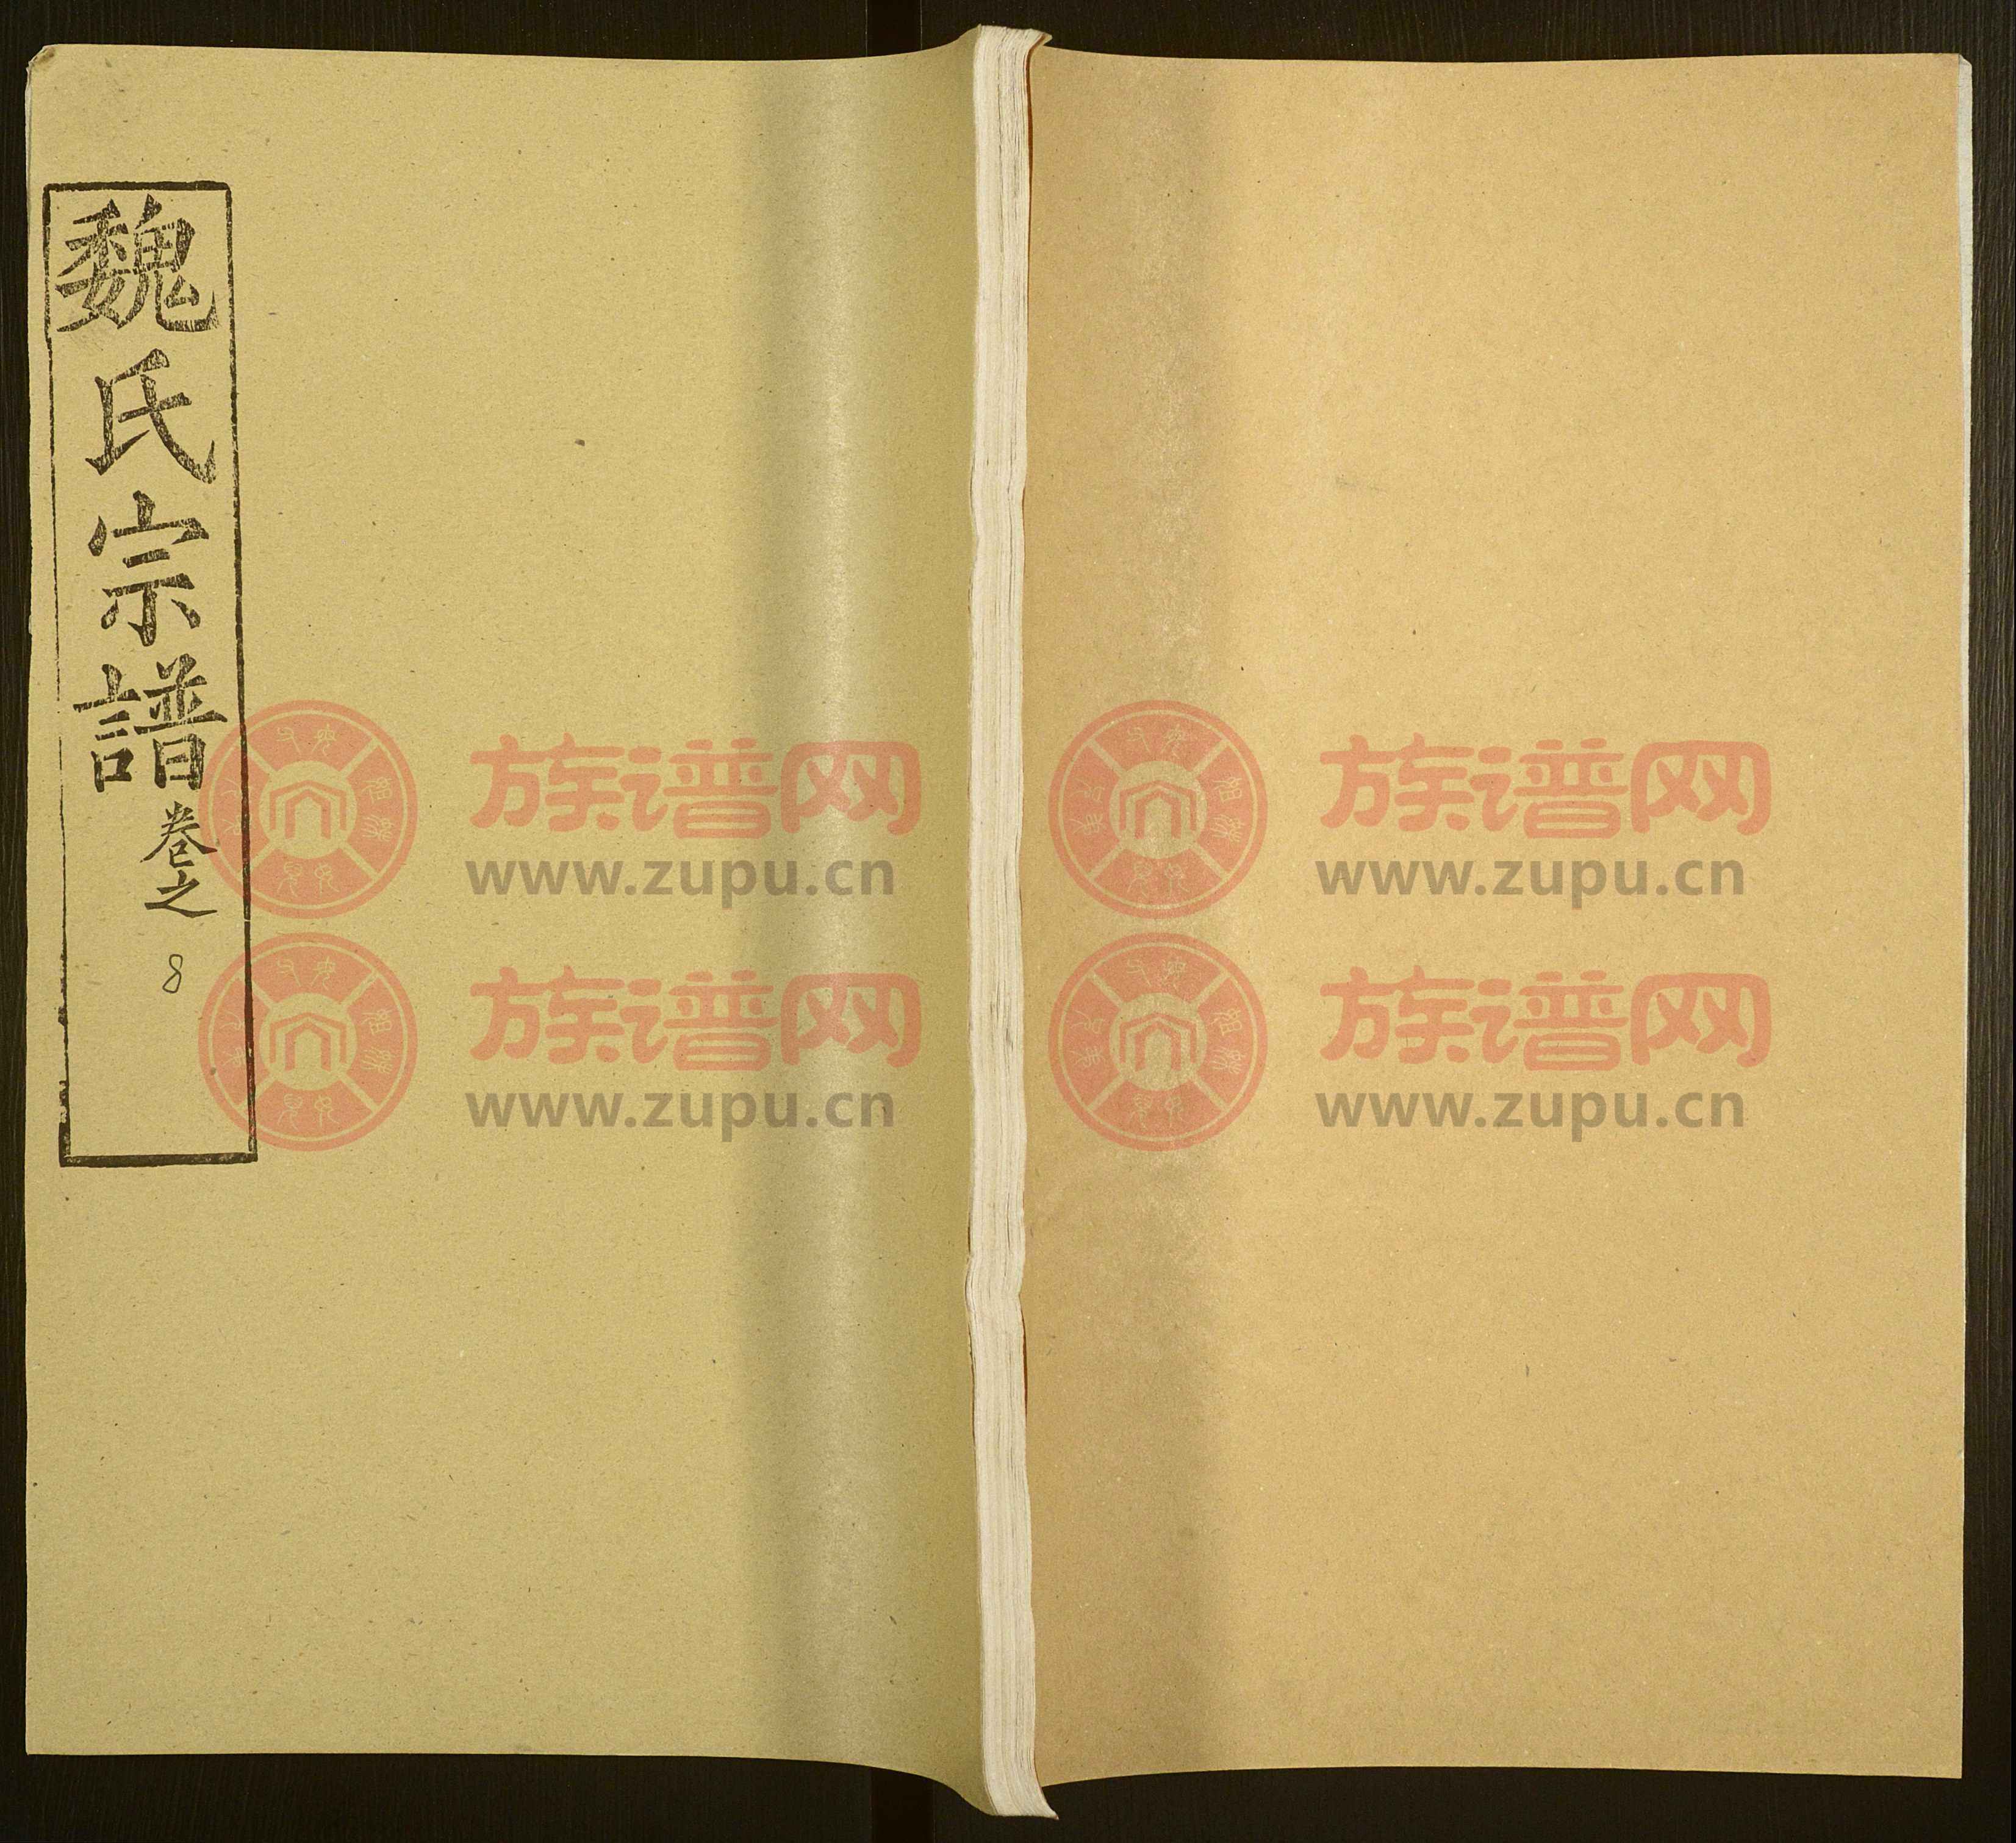 魏氏宗譜
卷之
8
族谱网
www.zupu.cn
族谱网
www.zupu.cn
族谱网
www.zupu.cn
族谱网
www.zupu.cn